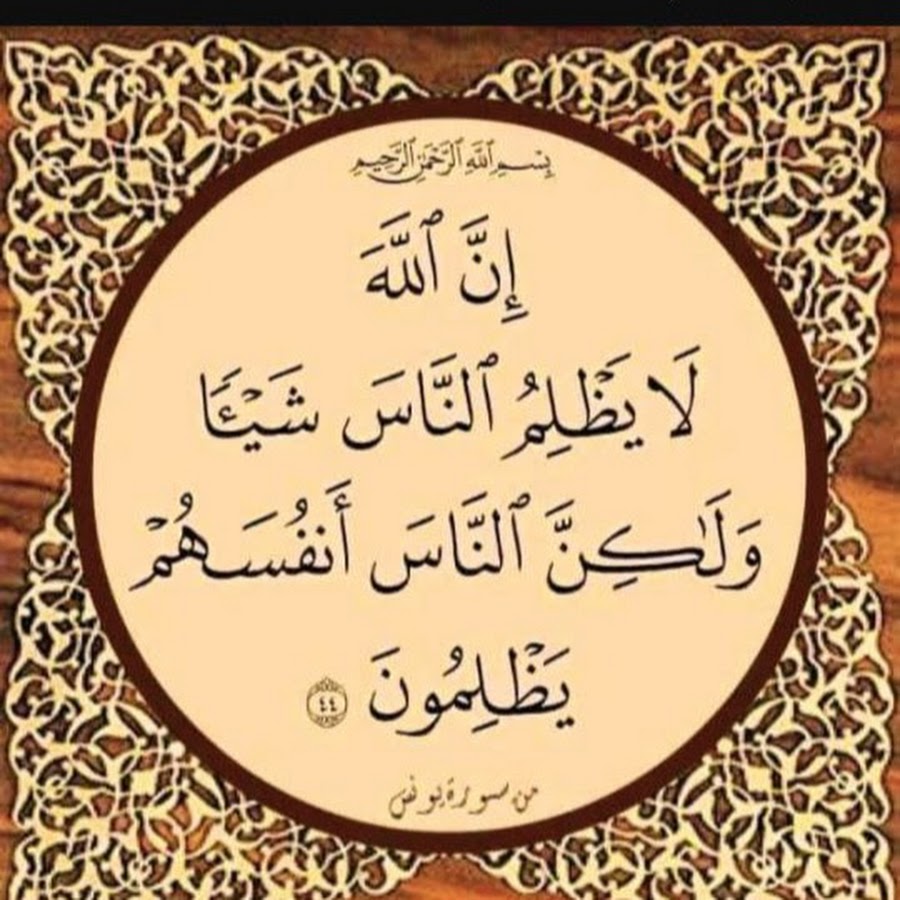 بِسْمِ ٱللَّهِ ٱلرَّحْمَٰنِ ٱلرَّحِيمِ
إِنَّ ٱللَّهَ
لَا يَظْلِمُ ٱلنَّاسَ شَيْـًٔا
وَلَٰكِنَّ ٱلنَّاسَ أَنفُسَهُمْ
يَظْلِمُونَ ٤٤
من سورة يونس